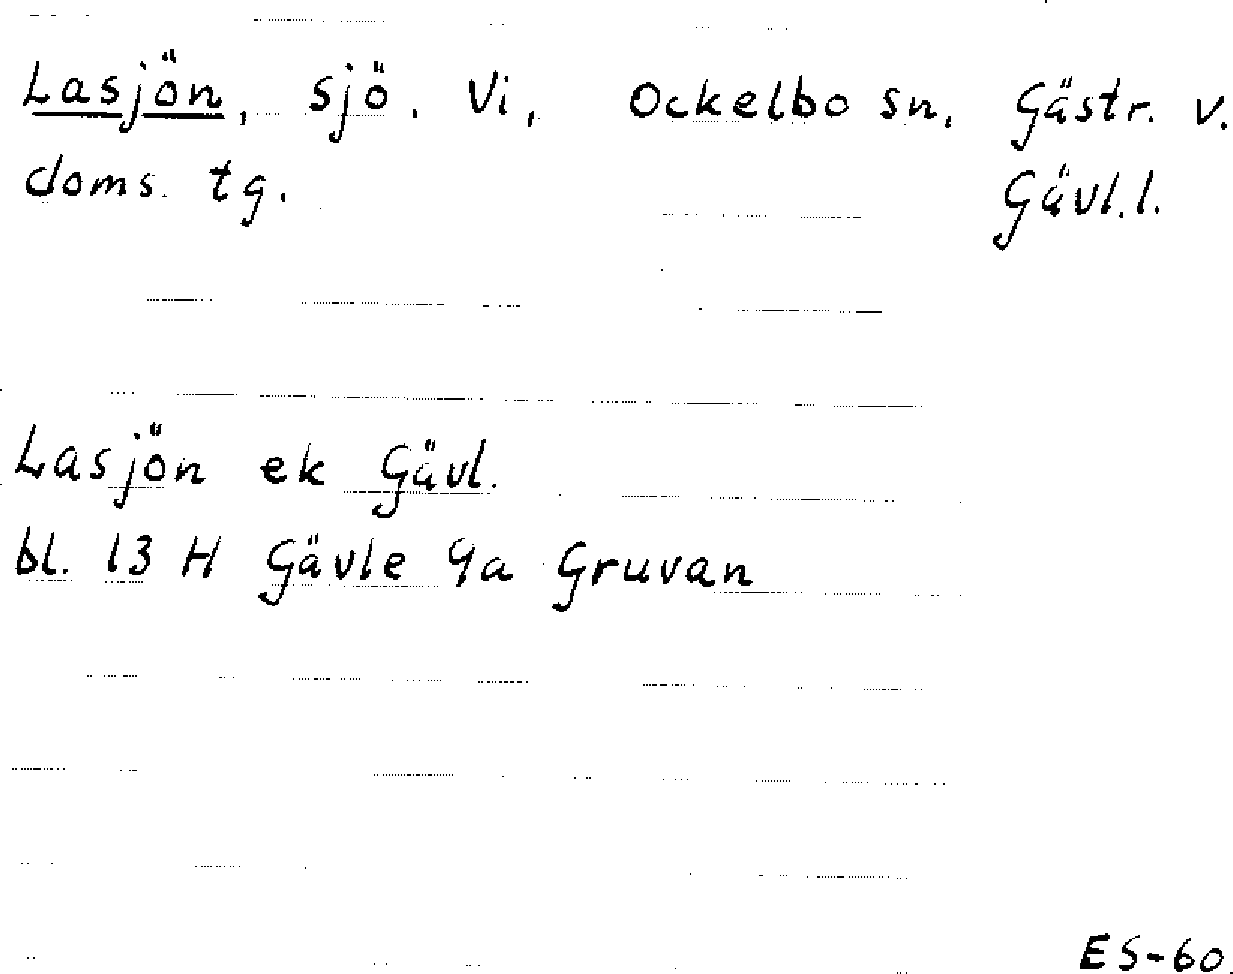 Lasjön, sjö. Vi, Ockelbo sn. Gästr. v.
doms. tg. Gävl.l.
Lasjön ek Gävl.
bl. 13 H Gävle 9a Gruvan
ES-60.